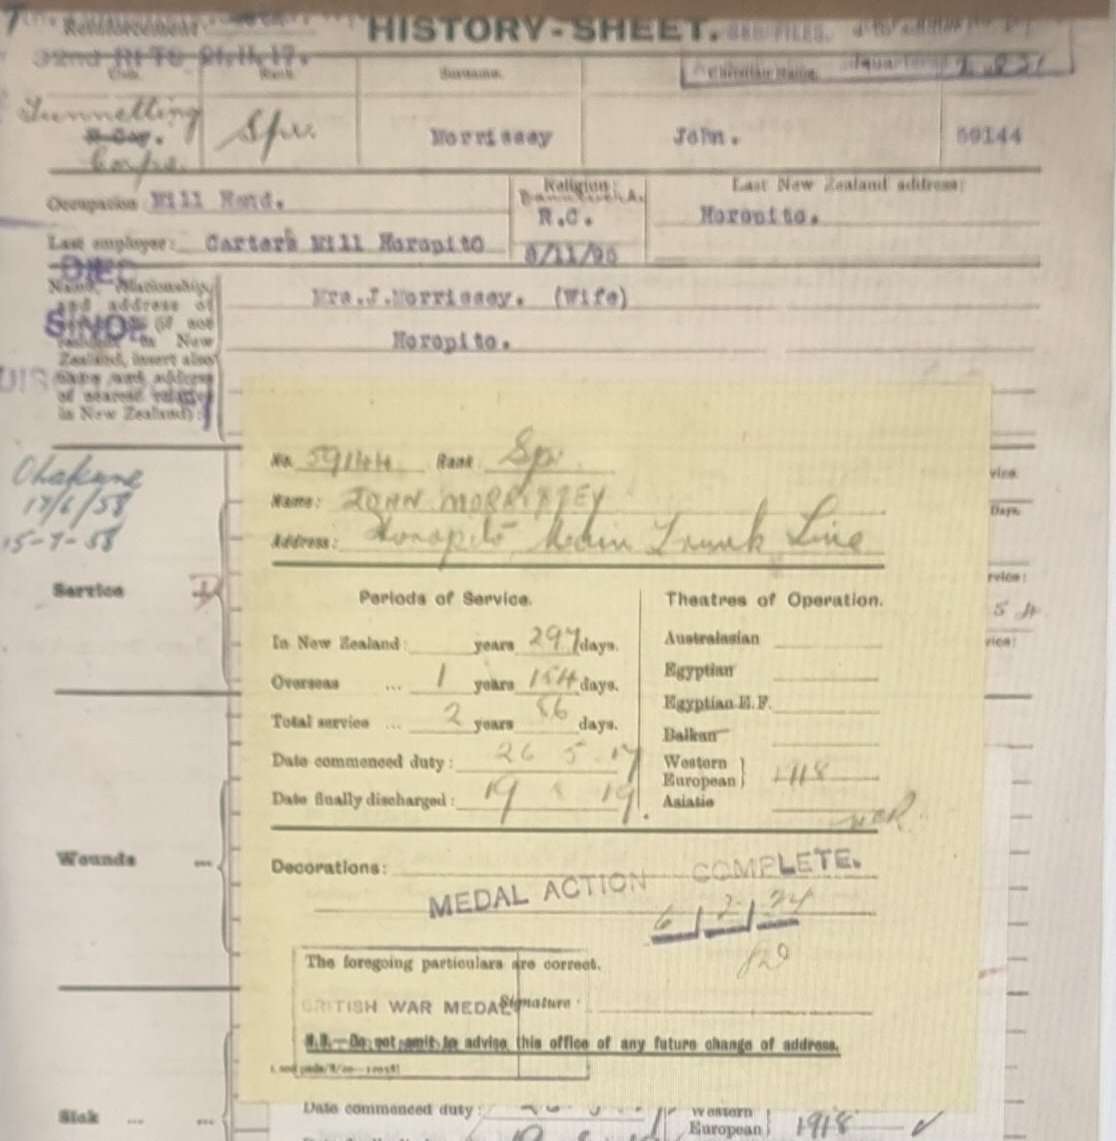 Reinforcement
HISTORY-SHEET.
Surname. Christian Name.
Tunnelling
Corps. Spr. Morrissey John. 59144
Occupation Mill Hand.
Religion:
R.C.
8/11/96
Last New Zealand address:
Horopito.
Last employer: Carters Mill Horopito
DIED
SINCE
Name, relationship,
and address of
in New
Zealand, insert also
name and address
of nearest relative
in New Zealand):
Mrs.J.Morrissey. (Wife)
Horopito.
Ohakune
17/6/58
15-7-58
Service
Wounds ...
Sick ... ...
No. 59144 Rank Spr.
Name: JOHN MORRISSEY
Address: Horopito Main Trunk Line
Periods of Service.
In New Zealand: years 297 days.
Overseas ... 1 years 154 days.
Total service ... 2 years 86 days.
Date commenced duty: 26 5 17
Date finally discharged: 19 8 19.
Theatres of Operation.
Australasian
Egyptian
Egyptian E.F.
Balkan
Western
European 1918
Asiatic
Decorations:
MEDAL ACTION COMPLETE.
6/2/24
The foregoing particulars are correct.
BRITISH WAR MEDAL Signature
N.B.—Do not omit to advise this office of any future change of address.
Date commenced duty:
Western
European 1918